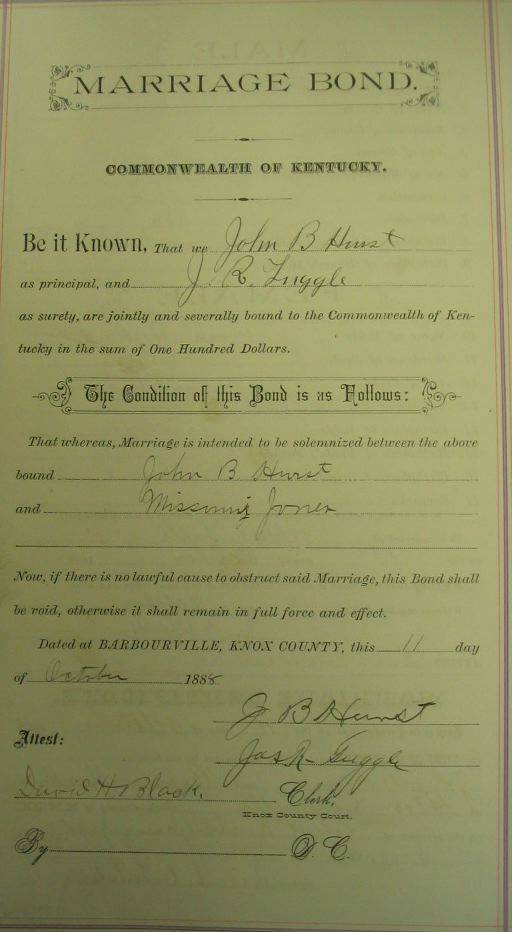 MARRIAGE BOND.
COMMONWEALTH OF KENTUCKY.
Be it Known, That we John B Hurst
as principal, and J. R. Tuggle
as surety, are jointly and severally bound to the Commonwealth of Ken-
tucky in the sum of One Hundred Dollars.
The Condition of this Bond is as Follows:
That whereas, Marriage is intended to be solemnized between the above
bound John B Hurst
and Missouri Jones
Now, if there is no lawful cause to obstruct said Marriage, this Bond shall
be void, otherwise it shall remain in full force and effect.
Dated at BARBOURVILLE, KNOX COUNTY, this 11 day
of October 1888
J B Hurst
Attest:
Jas R Tuggle
David H. Black. Clerk,
Knox County Court.
By D. C.